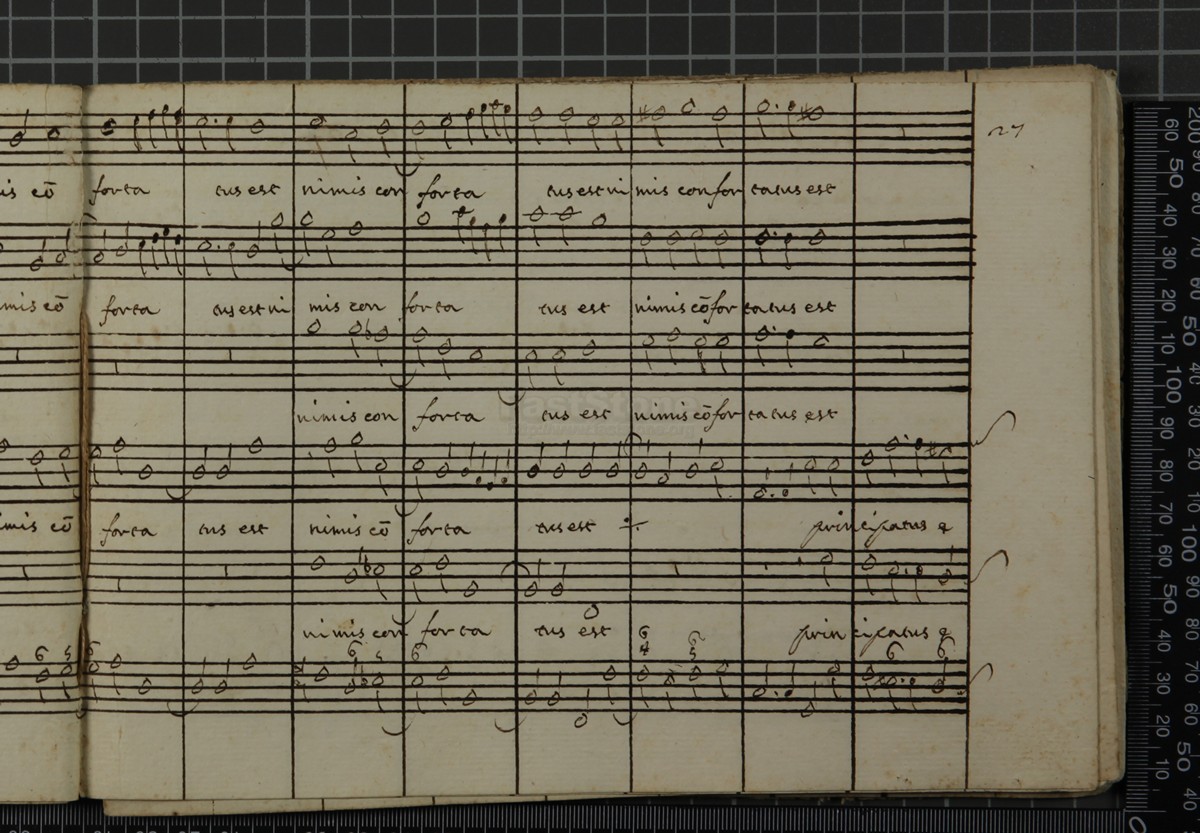 27
is cō forta tus est nimis con forta tus est ni mis confor tatus est
mis cō forta tus est ni mis con forta tus est nimis cōfor tatus est
nimis con forta tus est nimis cōfor tatus est
imis cō forta tus est nimis cō forta tus est principatus
nimis con forta tus est principatus
6 5 6 6 5 6 6 4 6 5 6 6